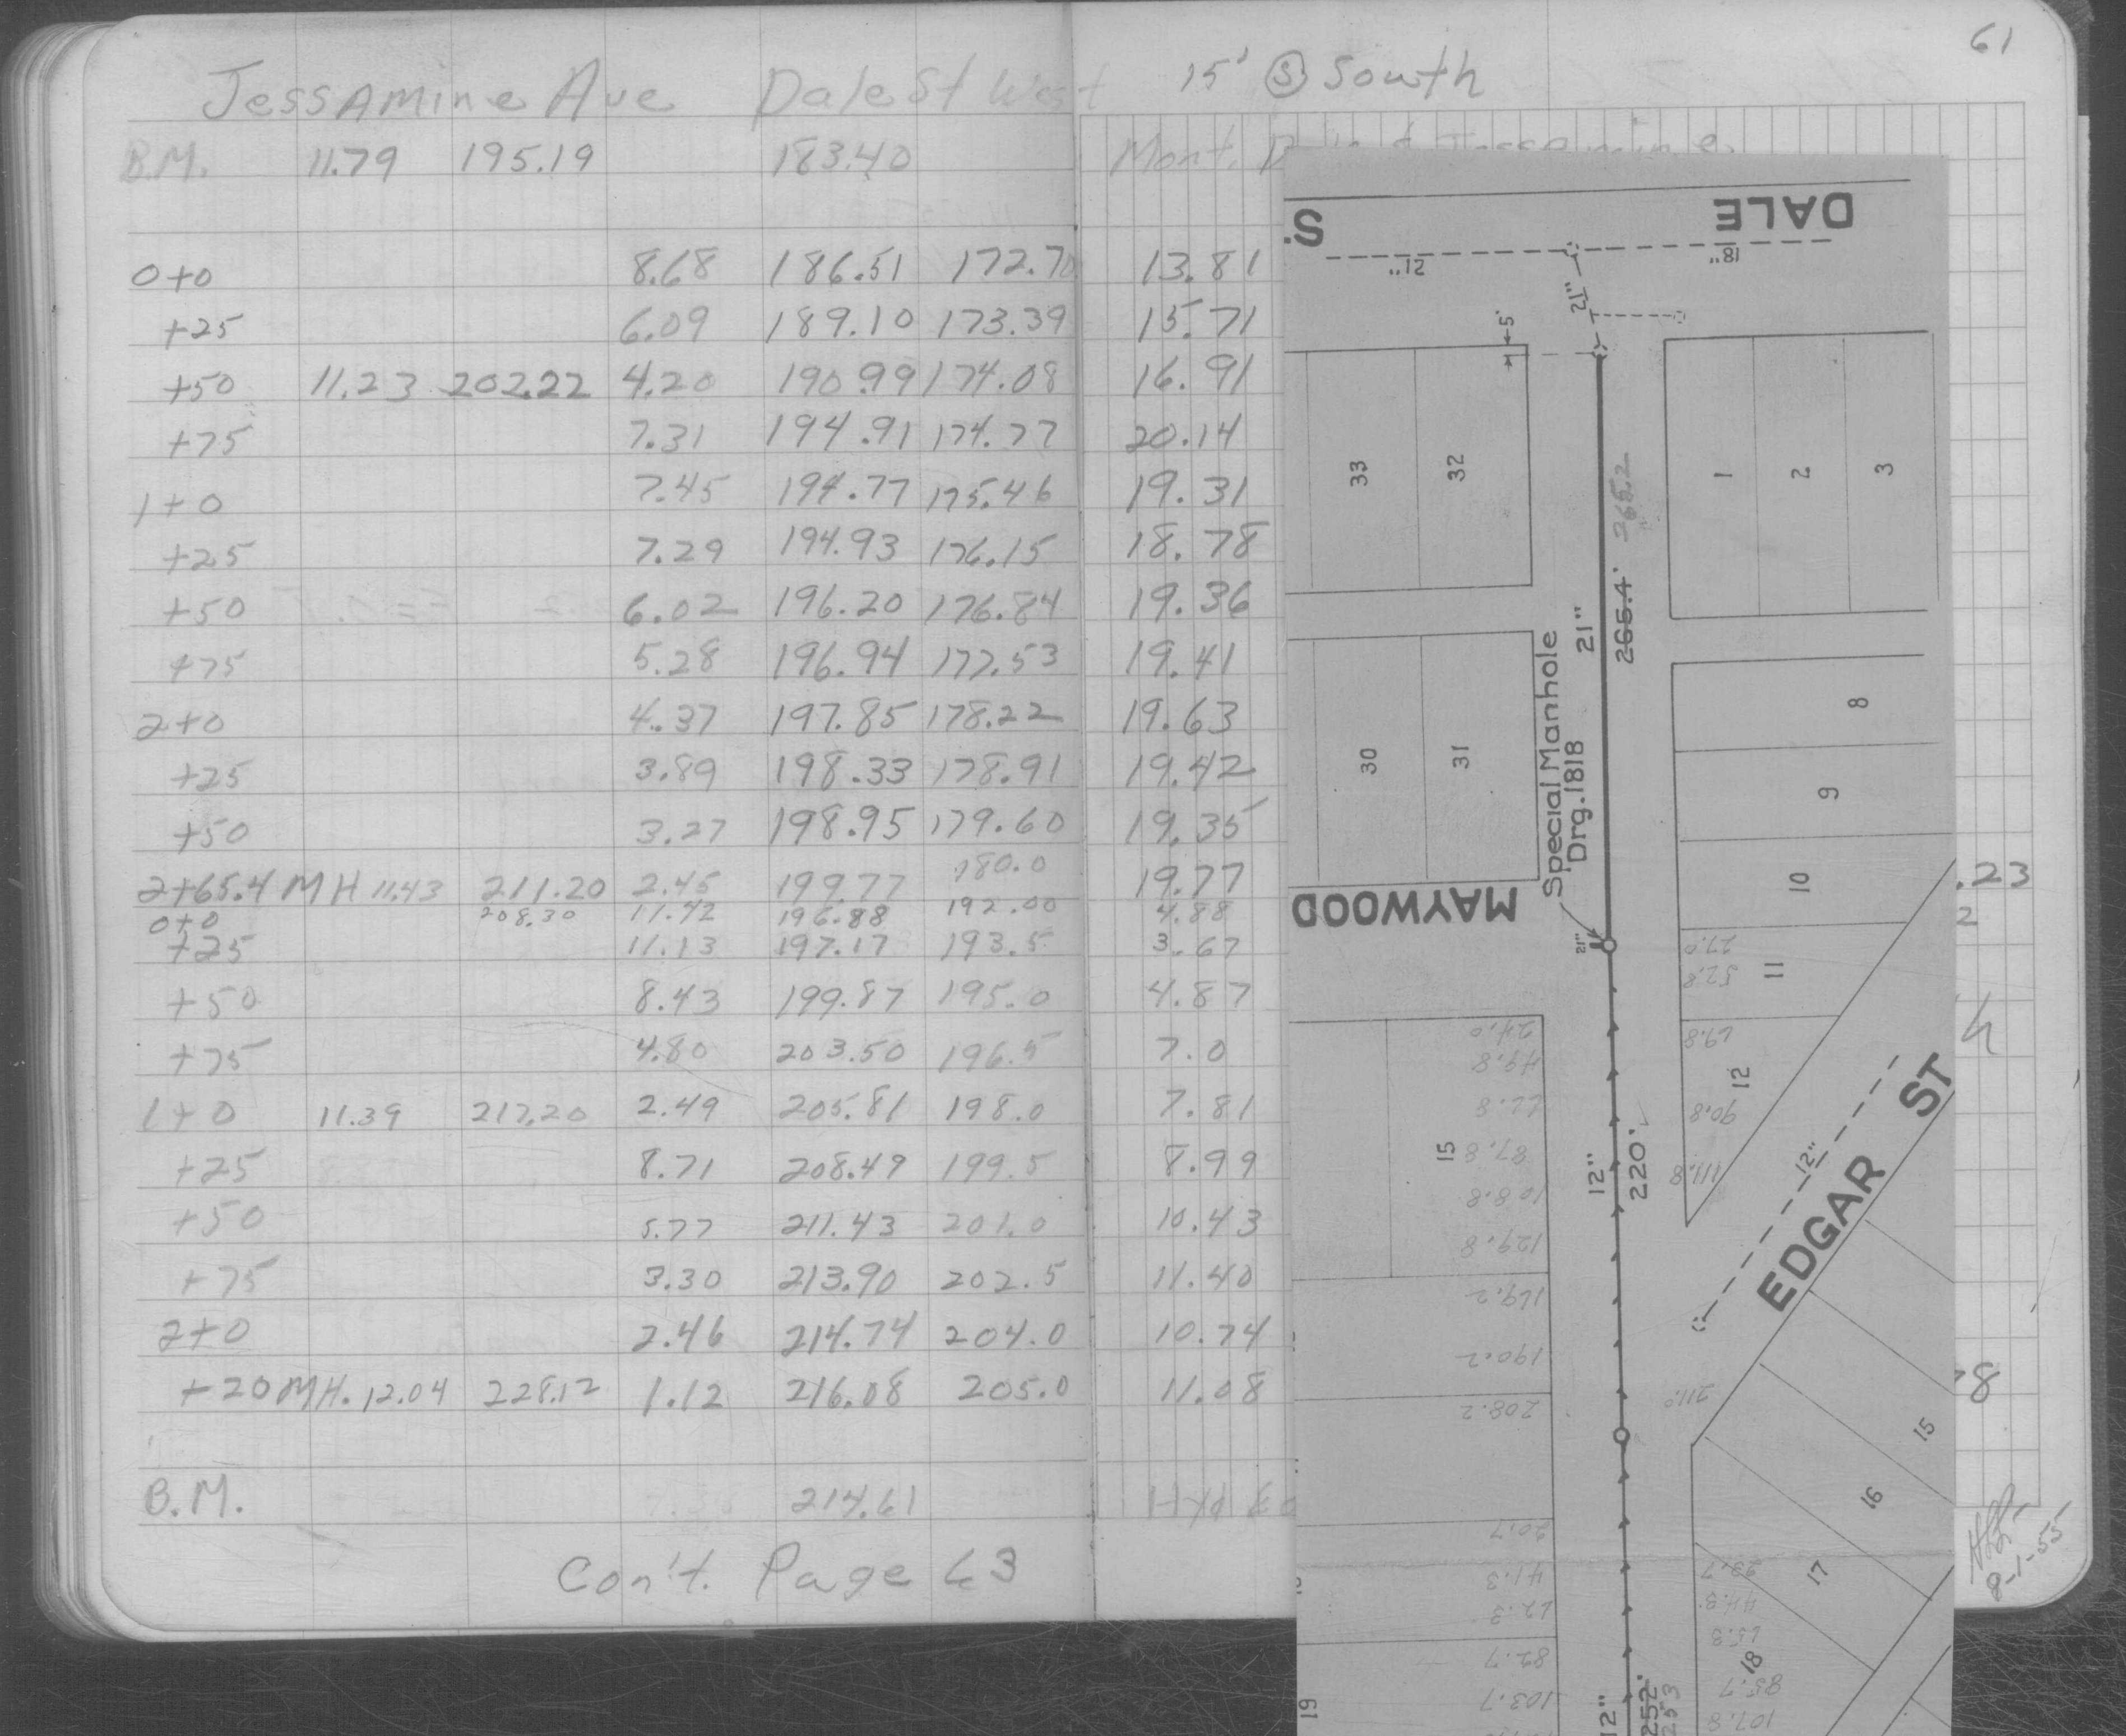 61
Jessamine Ave Dale St West 15' Ⓢ South
B.M. 11.79 195.19 183.40 Mont.
0+0 8.68 186.51 172.70 13.81
+25 6.09 189.10 173.39 15.71
+50 11.23 202.22 4.20 190.99 174.08 16.91
+75 7.31 194.91 174.77 20.14
1+0 7.45 194.77 175.46 19.31
+25 7.29 194.93 176.15 18.78
+50 6.02 196.20 176.84 19.36
+75 5.28 196.94 177.53 19.41
2+0 4.37 197.85 178.22 19.63
+25 3.89 198.33 178.91 19.42
+50 3.27 198.95 179.60 19.35
2+65.4 MH 11.43 211.20 2.45 199.77 180.0 19.77
0+0 208.30 11.42 196.88 192.00 4.88
+25 11.13 197.17 193.5 3.67
+50 8.43 199.87 195.0 4.87
+75 4.80 203.50 196.5 7.0
1+0 11.39 217.20 2.49 205.81 198.0 7.81
+25 8.71 208.49 199.5 8.99
+50 5.77 211.43 201.0 10.43
+75 3.30 213.90 202.5 11.40
2+0 2.46 214.74 204.0 10.74
+20 MH. 12.04 228.12 1.12 216.08 205.0 11.08
B.M. 214.61
Con't. Page 63
DALE S
21" 18"
21"
5'
33 32 1 2 3
265.4' 265.2
21"
Special Manhole
Drg. 1818
30 31 8 9 10
MAYWOOD
21"
27.0
52.8
11
69.8
12
90.8
111.8
24.0
49.8
66.8
15 87.8
108.8
129.8
169.2
190.2
208.2
12"
220'
12"
EDGAR ST
211.0
15
16
17
18
20.7
41.3
62.3
82.7
103.7
23.7
44.8
65.8
85.7
107.8
19
12"
252'
253
.23
2
8
8-1-55